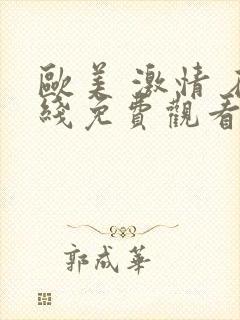 歐美激情
綫免費觀看
郭成華